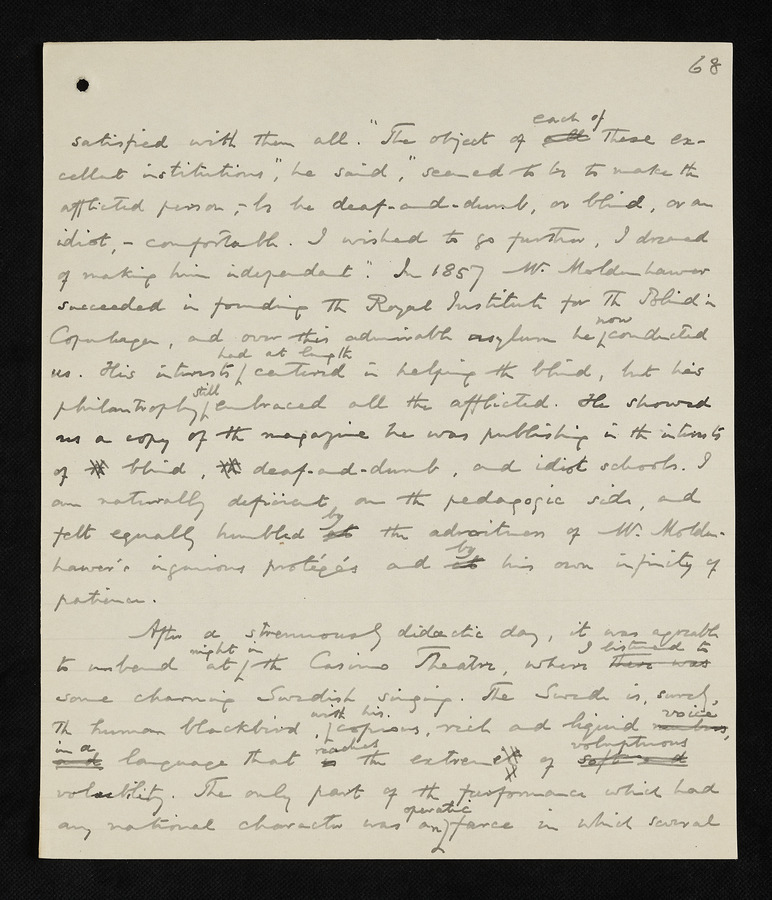 68
each of
satisfied with them all. "The object of all these ex-
cellent institutions", he said, "seemed to be to make the
afflicted person, – be he deaf-and-dumb, or blind, or an
idiot, – comfortable. I wished to go further, I dreamed
of making him independent". In 1857 Mr. Moldenhawer
succeeded in founding the Royal Institute for the Blind in
Copenhagen, and over this admirable asylum he now conducted
us. His interests had at length centered in helping the blind, but his
philanthropy still embraced all the afflicted. He showed
us a copy of the magazine he was publishing in the interests
of blind, deaf-and-dumb, and idiot schools. I
am naturally deficient on the pedagogic side, and
felt equally humbled by at the adroitness of Mr. Molden-
hawer's ingenious protégés and by at his own infinity of
patience.
After a strenuously didactic day, it was agreeable
to unbend at night in the Casino Theatre, where I listened to there was
some charming Swedish singing. The Swede is, surely,
the human blackbird, with his copious, rich and liquid voice,
in a and language that reaches is the extreme of voluptuous soft and
volubility. The only part of the performance which had
any national character was an operatic farce in which several